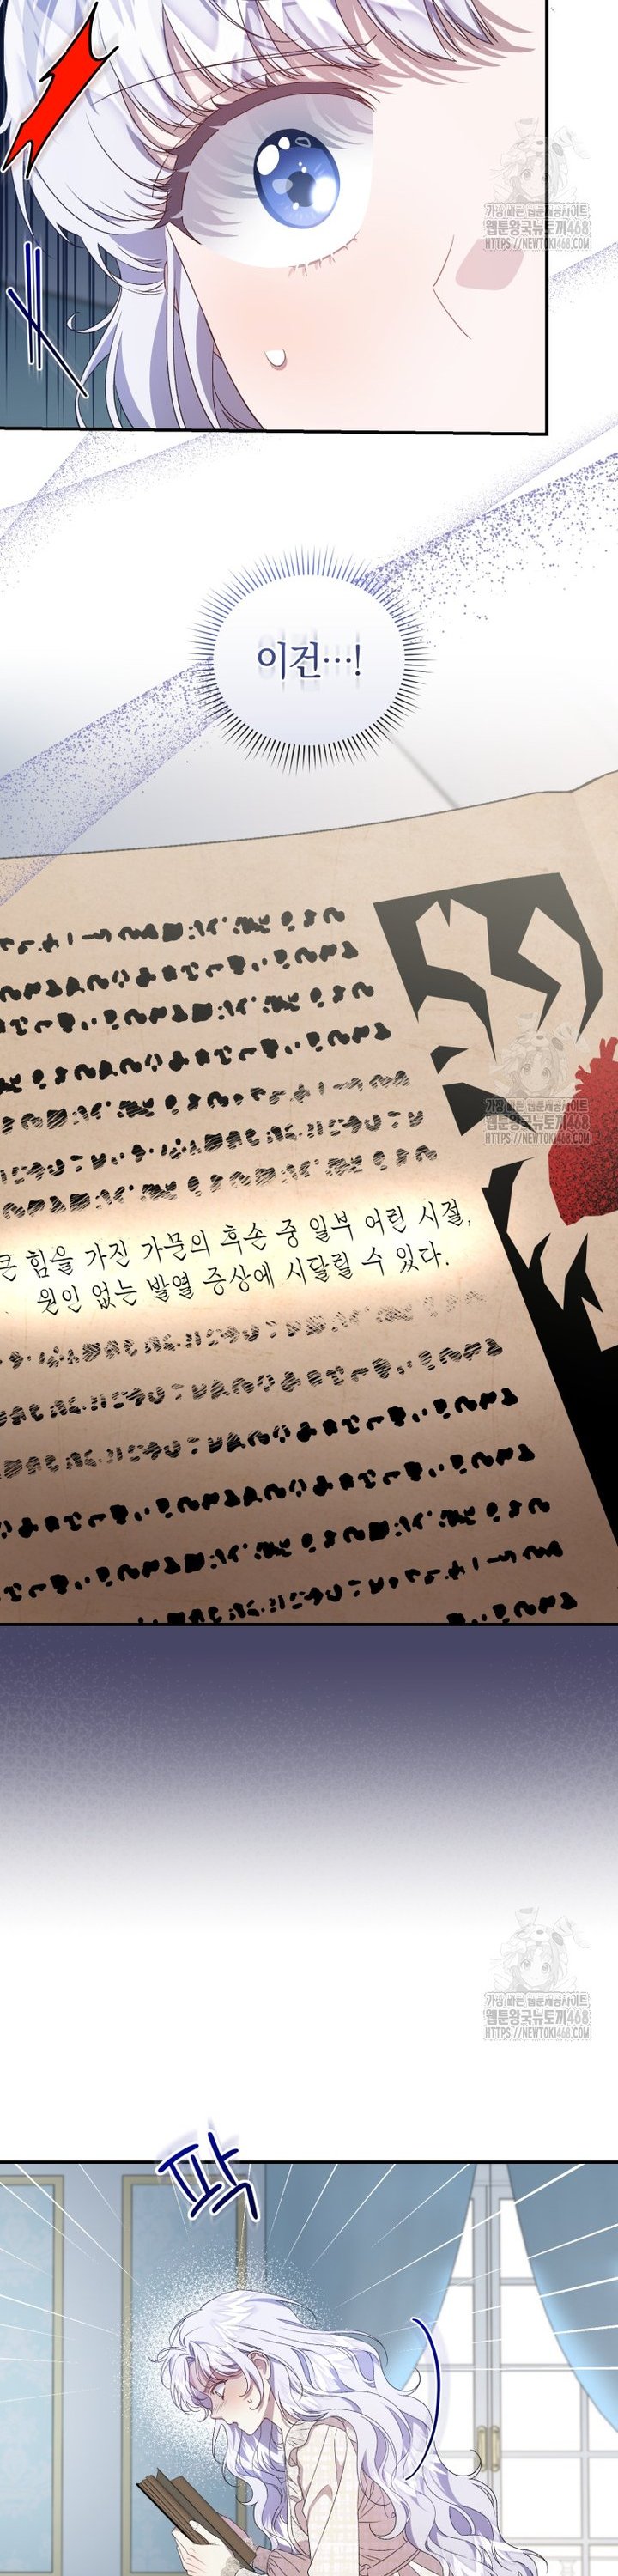 가장 빠른 웹툰제공사이트
웹툰왕국뉴토끼468
HTTPS://NEWTOKI468.COM
이건…!
가장 빠른 웹툰제공사이트
웹툰왕국뉴토끼468
HTTPS://NEWTOKI468.COM
큰 힘을 가진 가문의 후손 중 일부 어린 시절,
원인 없는 발열 증상에 시달릴 수 있다.
가장 빠른 웹툰제공사이트
웹툰왕국뉴토끼468
HTTPS://NEWTOKI468.COM
팍